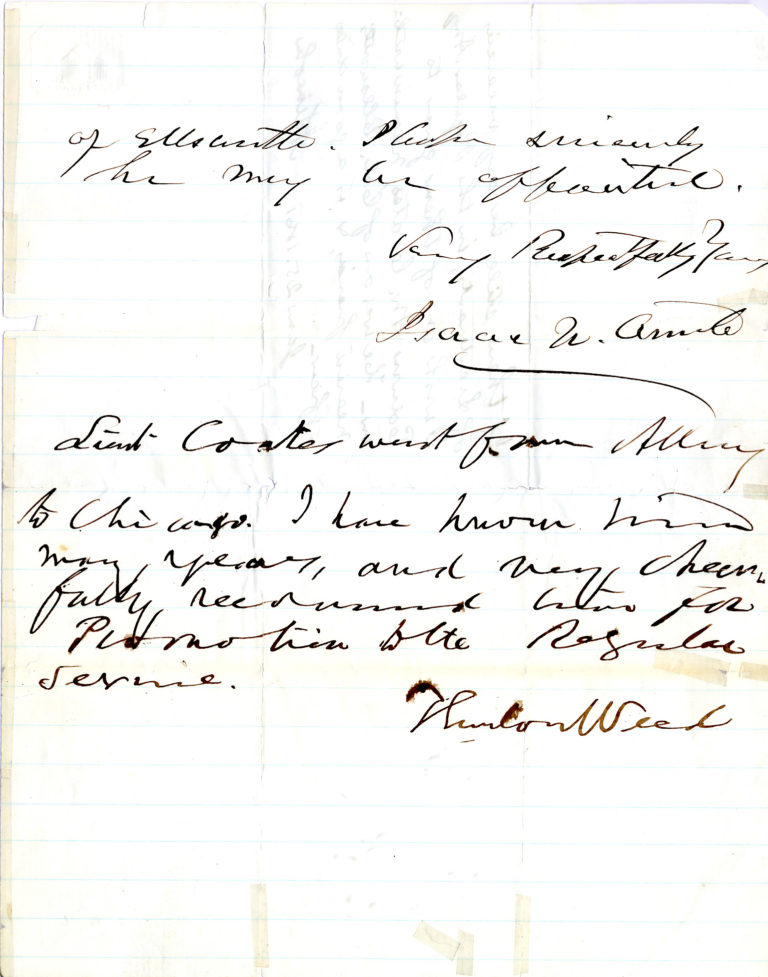 of Ellsworth. I hope sincerely
he may be appointed.
Very Respectfully Yours
Isaac N. Arnold
Lieut Coates went from Albany
to Chicago. I have known him
many years, and very cheer-
fully recommend him for
Promotion to the Regular
Service.
Thurlow Weed